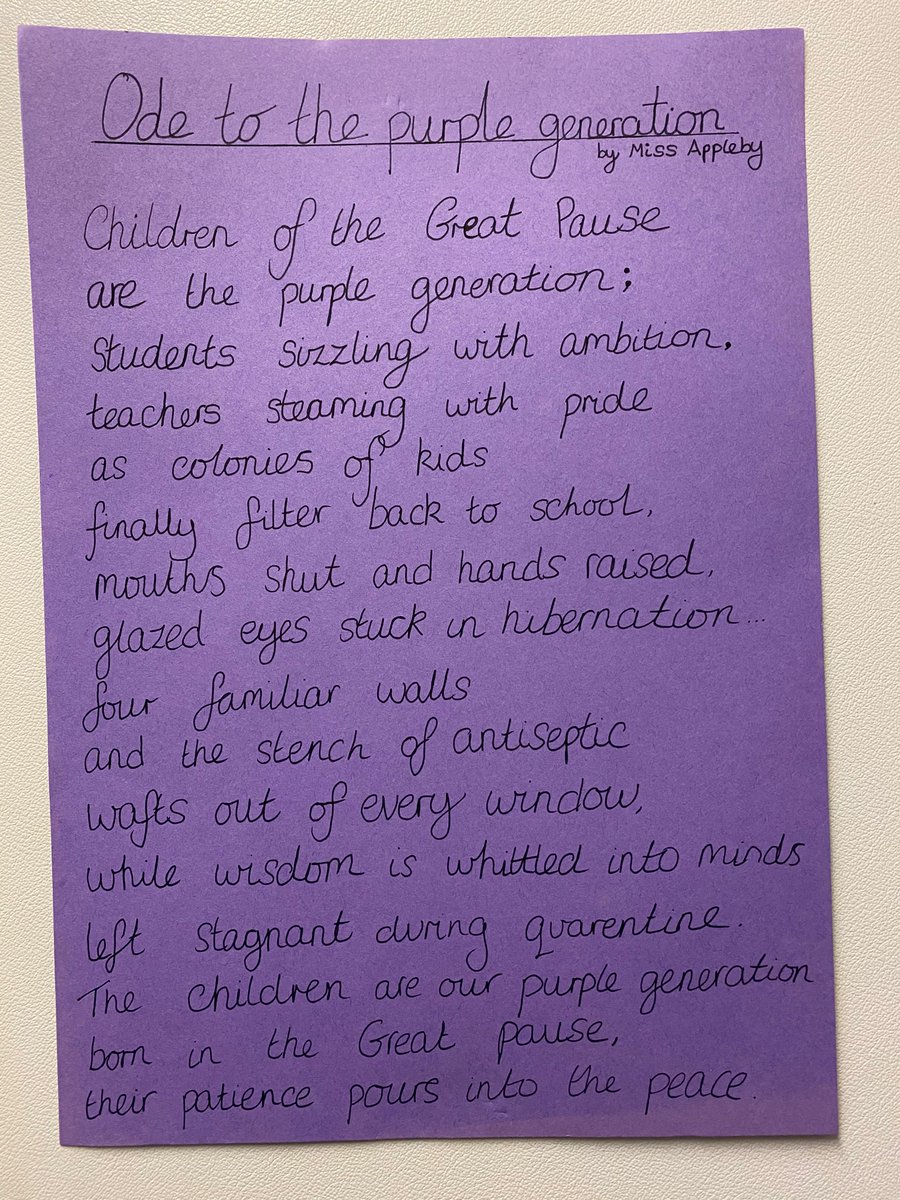 Ode to the purple generation
by Miss Appleby
Children of the Great Pause
are the purple generation;
Students sizzling with ambition,
teachers steaming with pride
as colonies of kids
finally filter back to school,
mouths shut and hands raised,
glazed eyes stuck in hibernation...
four familiar walls
and the stench of antiseptic
wafts out of every window,
while wisdom is whittled into minds
left stagnant during quarentine.
The children are our purple generation
born in the Great pause,
their patience pours into the peace.